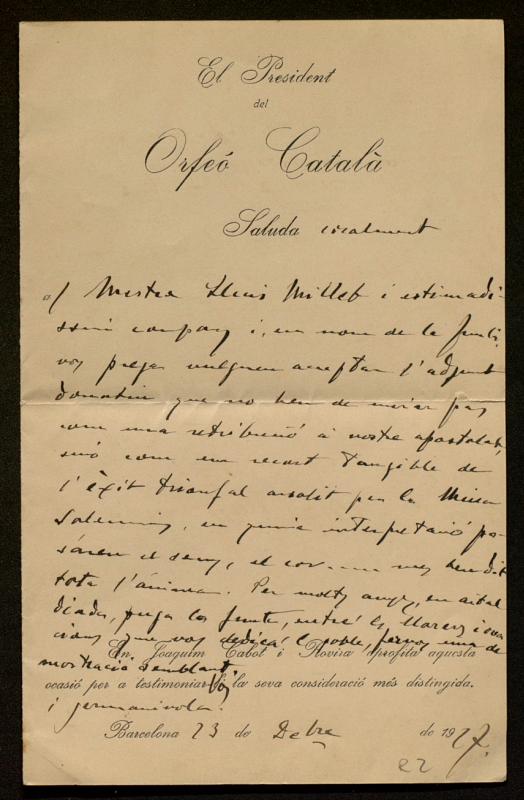 El President
del
Orfeó Català
Saluda coralment
al Mestre Lluis Millet i estimadi-
ssim company i, en nom de la Junta,
vos prega vulgueu acceptar l'adjunt
donatiu que no heu de mirar pas
com una retribució a vostre apostolat,
sinó com un recort tangible de
l'èxit triomfal assolit per la Missa
Solemnis, en qunia interpretació po-
sáreu el seny, el cor... mes ben dit
tota l'ánima. Per molts anys, en aital
diada, puga la Junta, entre els llorers i ova-
cions que vos dedica el poble, fervos una de-
En Joaquim Cabot i Rovira profita aquesta
mostració semblant
ocasió per a testimoniar-vos la seva consideració més distingida.
i germanivola.
Barcelona 23 de Debre de 1927.
22